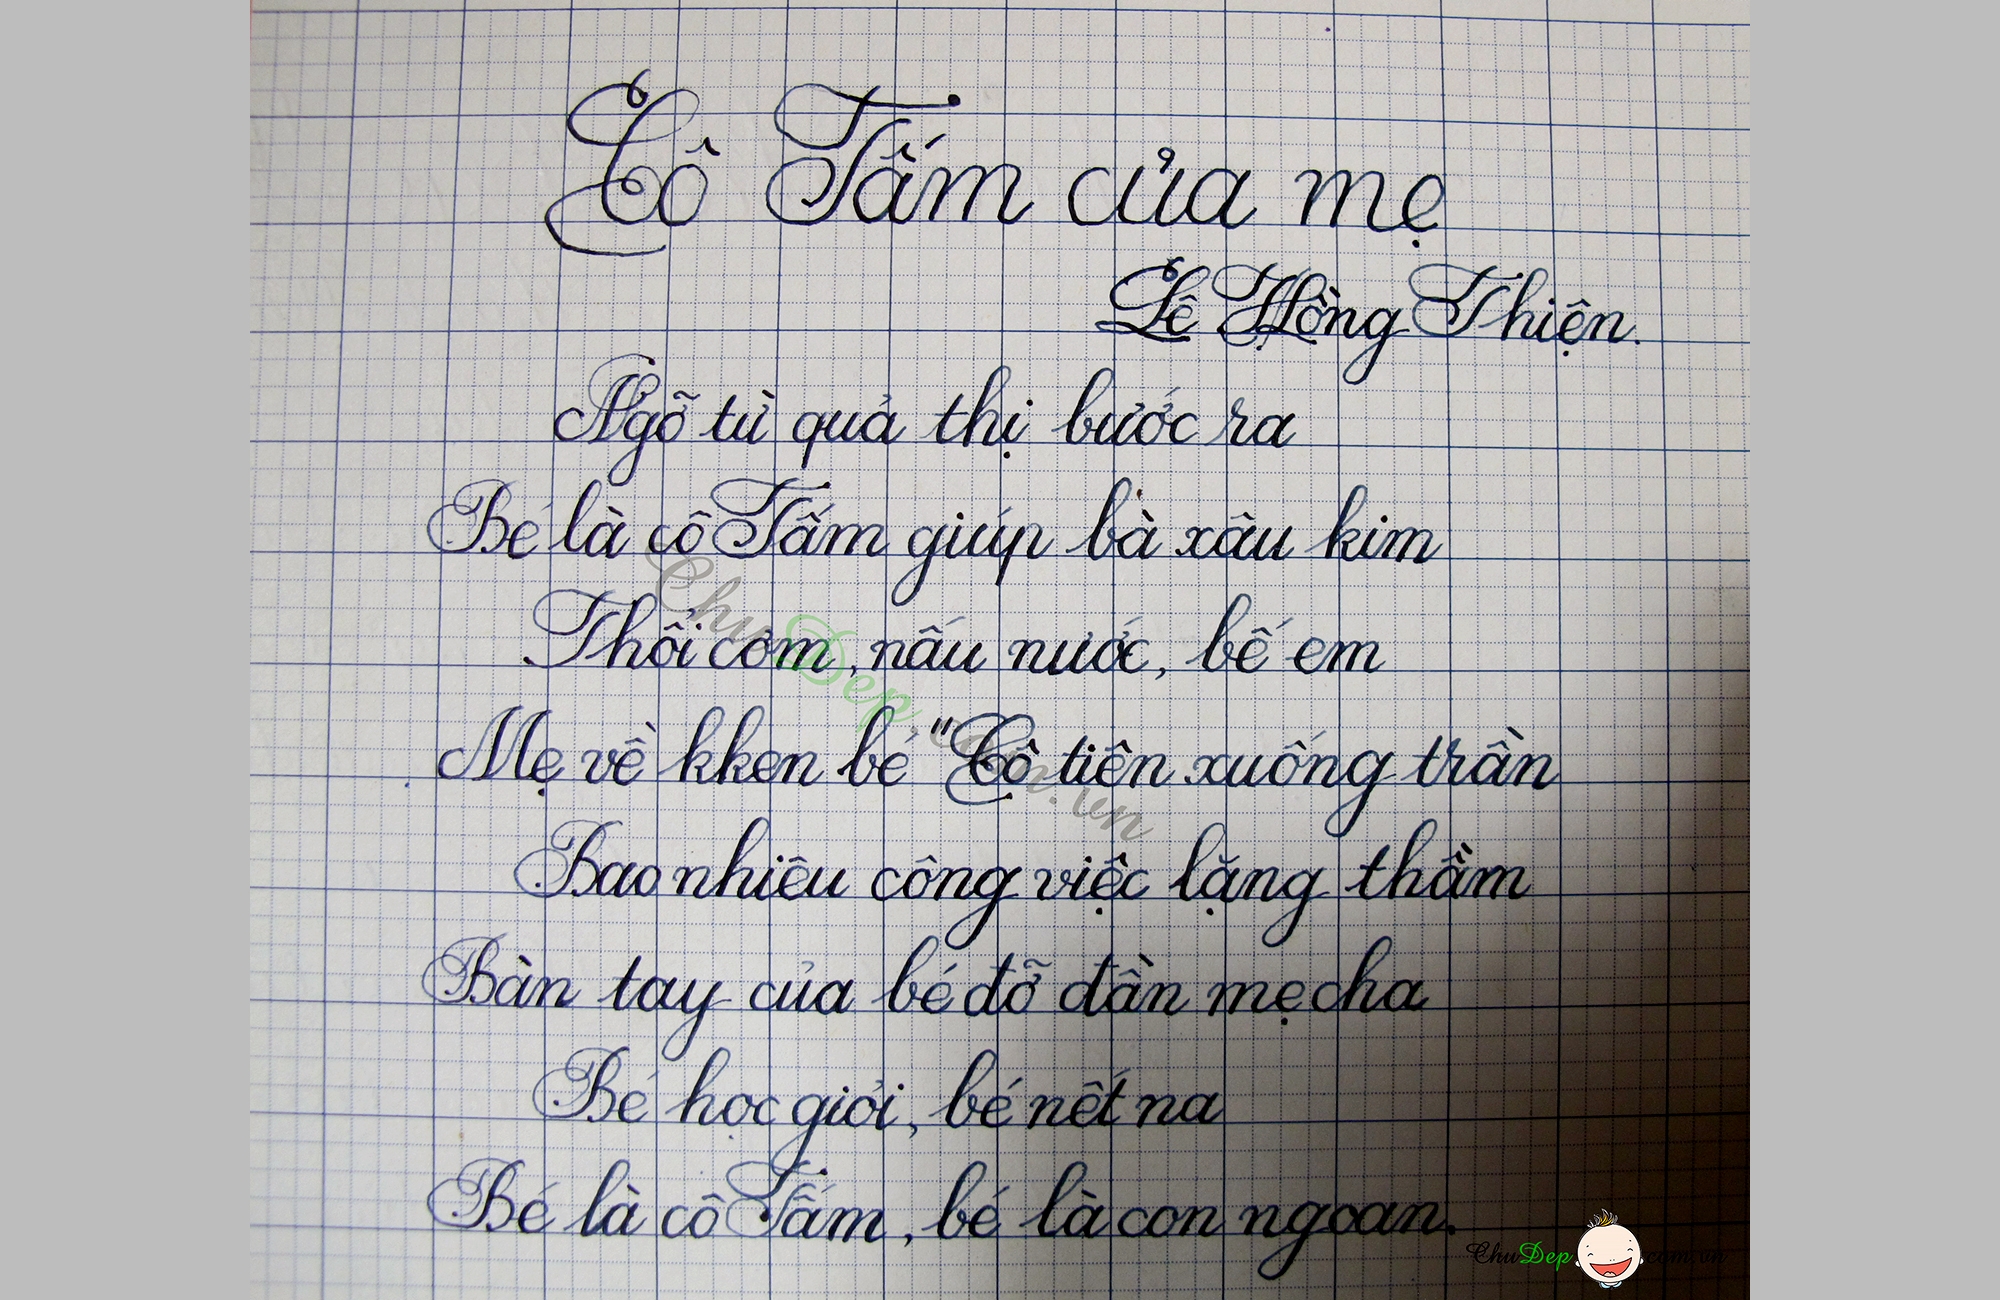 Cô Tấm của mẹ
Lê Hồng Thiện.
Ngỡ từ quả thị bước ra
Bé là cô Tấm giúp bà xâu kim
Thổi cơm, nấu nước, bế em
Mẹ về kken bé "Cô tiên xuống trần
Bao nhiêu công việc lặng thầm
Bàn tay của bé đỡ đần mẹ cha
Bé học giỏi, bé nết na
Bé là cô Tấm, bé là con ngoan.
ChuDep.com.vn
ChuDep.com.vn